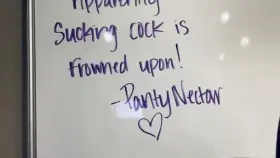 Apparently
Sucking cock is
frowned upon!
-PantyNectar